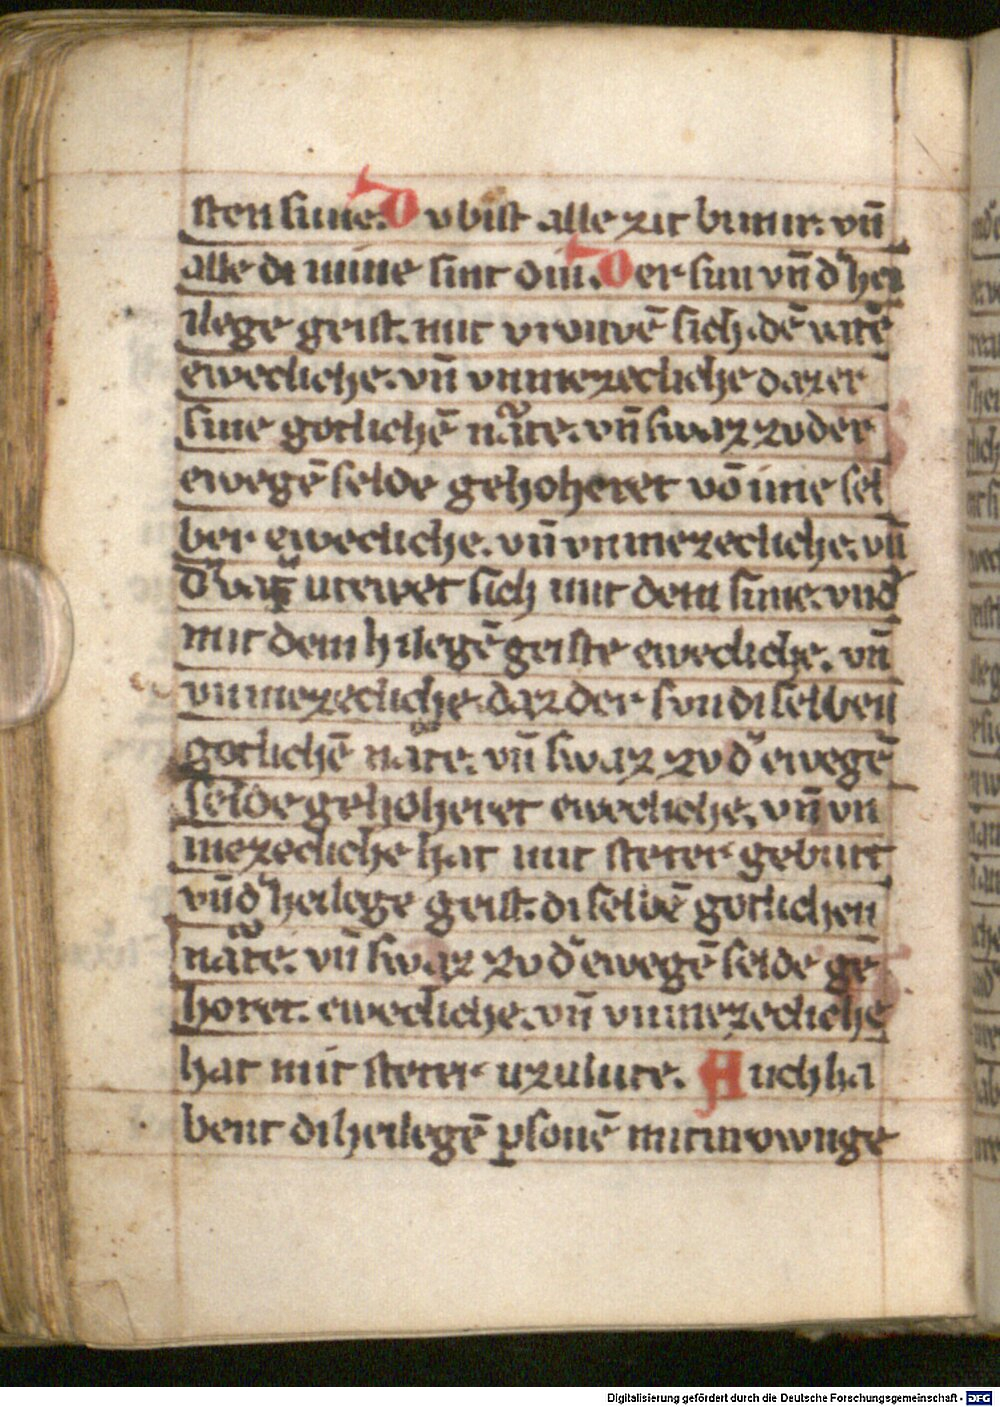 sten sune. Du bist alle zit bi mir. vn̄
alle di mine sint din. Der sun vn̄ d͛ hei
ilege geist. mit vrouwē sich. dē vatē
ewecliche. vn̄ vnmezecliche daz er
sine gotlichē nat͛ure. vn̄ swaz zv der
ewegē selde gehoheret vō ime sel
ber ewecliche. vn̄ vnmezecliche. vn̄
d͛ vat͛ urewet sich mit dem sune. vnd
mit dem hilegē geiste ewecliche. vn̄
vnmezecliche. daz der svn di selben
gotlichē nat͛ure. vn̄ swaz zv d͛ ewegē
selde gehoheret ewecliche. vn̄ vn
mezecliche hat mit steter geburt
vn̄ d͛ heilege geist. di selbē gotlichen
nat͛ure. vn̄ swaz zv d͛ ewegē selde ge
horet. ewecliche. vn̄ vnmezecliche
hat mit steter uzvlute. Auch ha
bent di heilegē ꝑsonē mitinvownge
Digitalisierung gefördert durch die Deutsche Forschungsgemeinschaft - DFG